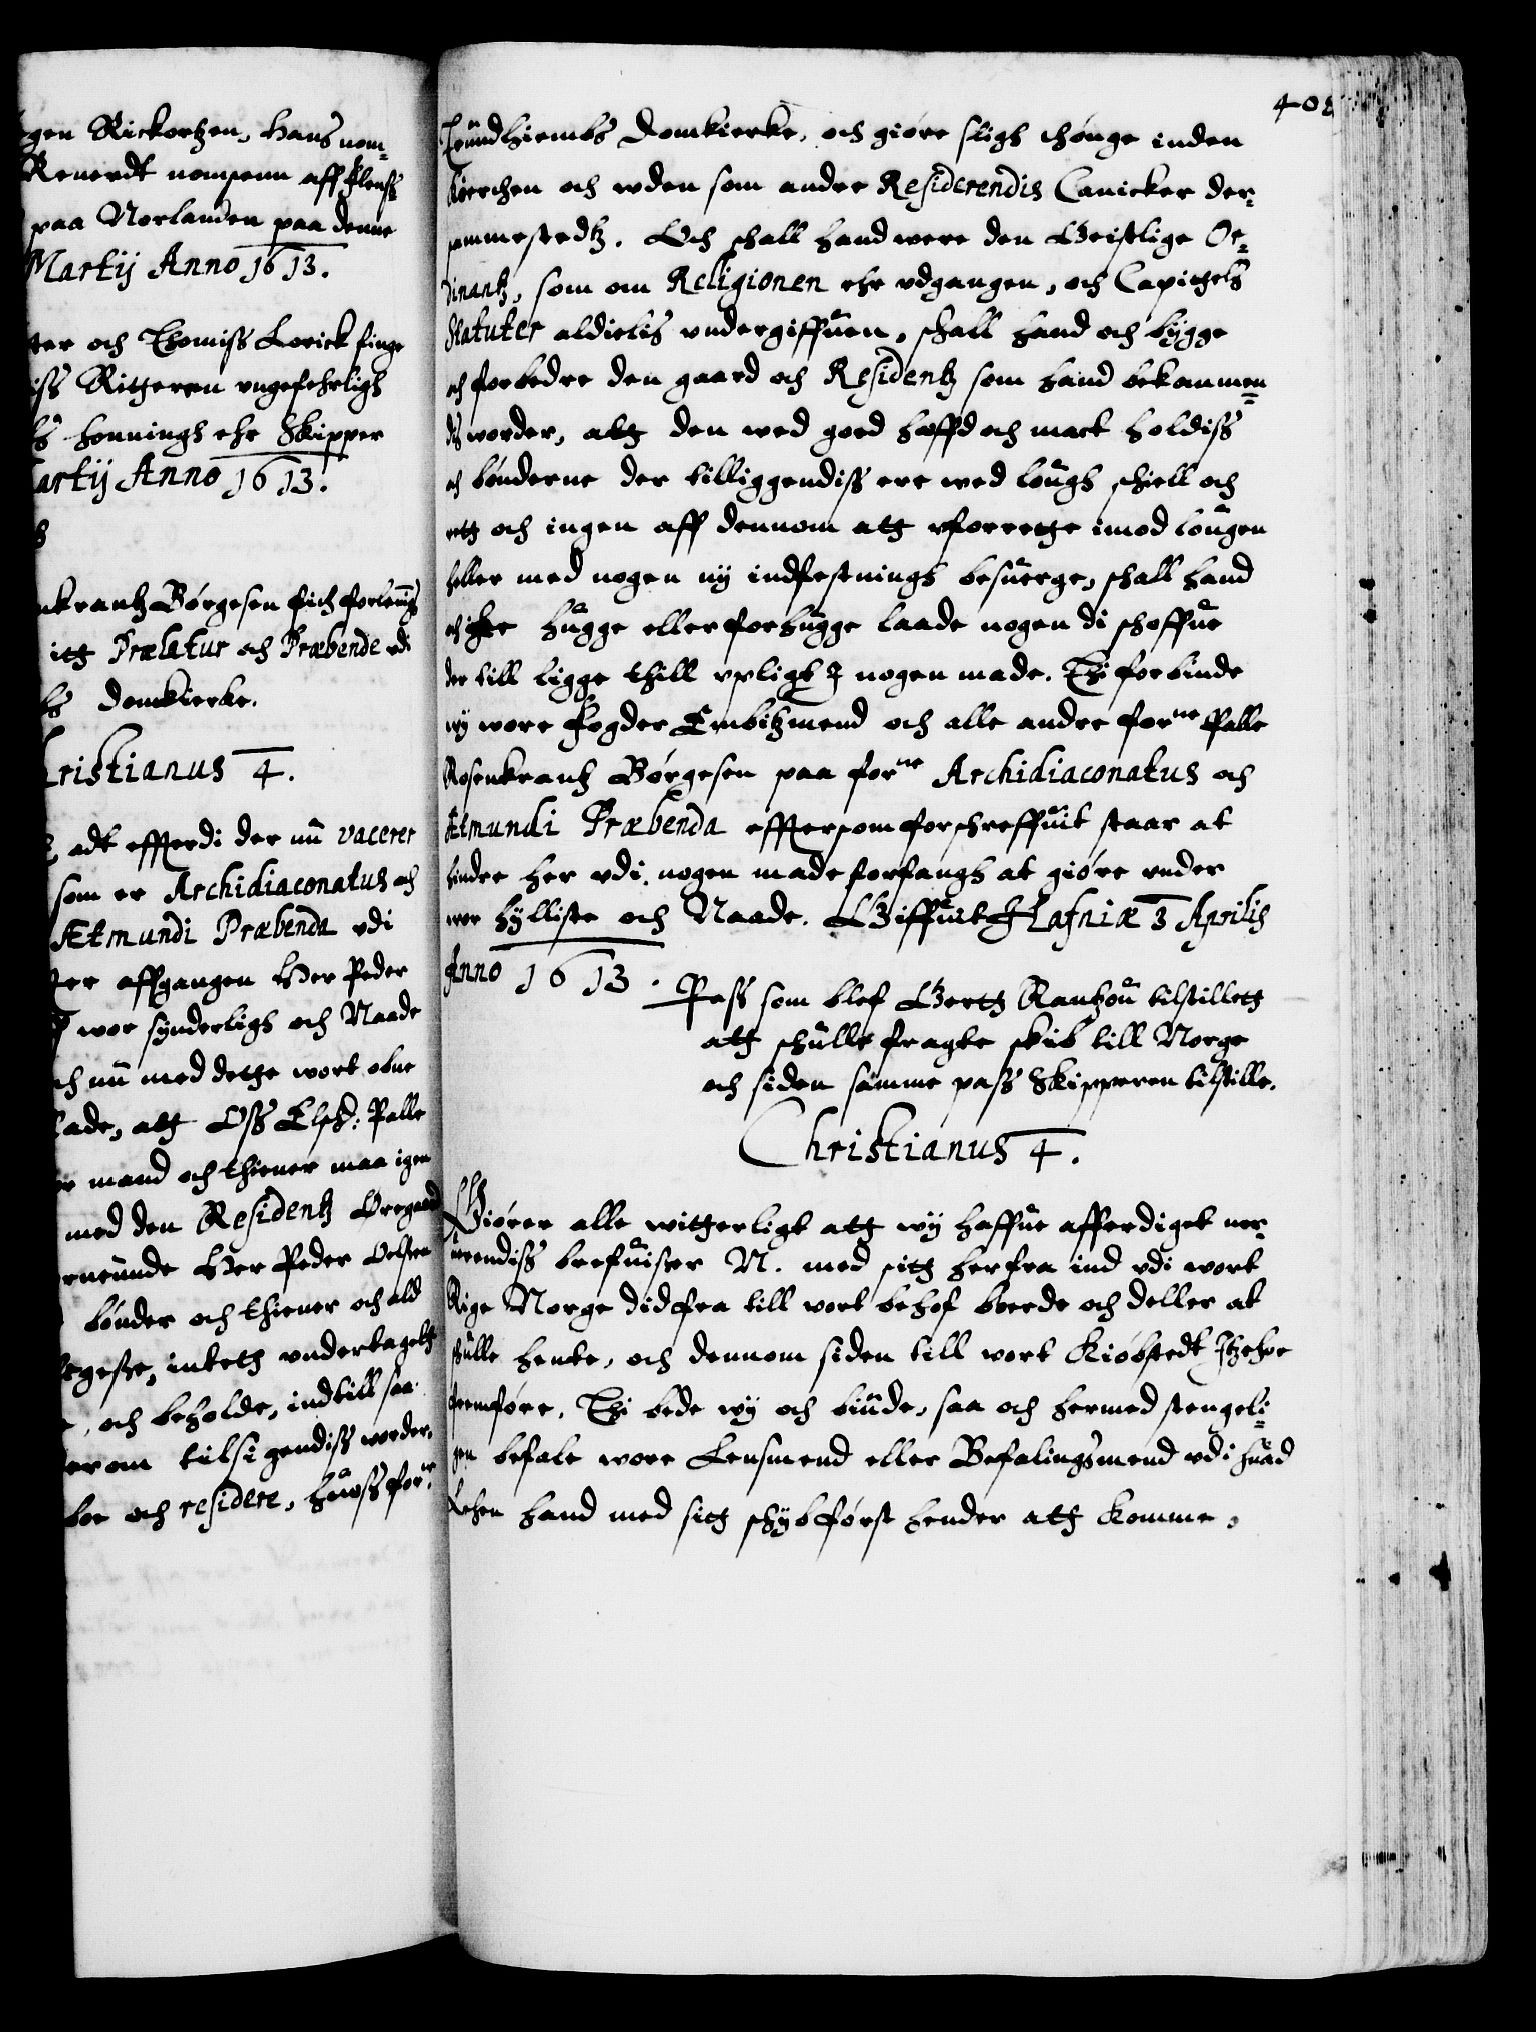 gen Rickortzen, Hans nom-
Renerdt nompenn aff Flens
paa Norlanden paa denne
Martij Anno 1613.
ter och Thomiss Lorick finge
iss Ritgeren ungefehrligh
honningh ehr Skipper
artij Anno 1613.
nkrantz Børgesen fich forlenngs
itt Prælatur och Præbende udi
Domkierke.
hristianus 4.
adt effterdi der nu vacerer
som er Archidiaconatus och
Ætmundi Præbenda udi
er affgangen Her Peder
wor synderligh och Naade
ch nu med dette wort obne
lade, att Oss Elsk: Palle
er mand och thiener maa igen
med den Residentz Øregaard
rneunde Her Peder Oelsen
bønder och thiener och ald
egeste, inteth undertageth
, och beholde, indtill saa
erom tilsigendiss worder,
boe och residere, huoss forne
408
Trundhiembs Domkierke, och giøre sligh thønge inden
Kierchen och uden som andre Residerendis Canicker der-
sammestedtz. Och schall hand were den Geistlige Or-
dinantz, som om Religionen ehr udgangen, och Capittels
Statuter aldielis undergiffuen, schall hand och bÿgge
och forbedre den gaard och Residentz som hand bekammen=
dis worder, att den wed goed hæffd och mact holdiss
och bønderne der tilliggendiss ere wed lough schiell och
rett och ingen aff dennom att uforrette imod lougen
heller med nogen nÿ indfestningh besuerge, schall hand
och icke hugge eller forhugge laade nogen di schoffue
der till ligge thill upligt I nogen made. Thi forbinde
wÿ wore fogder Embitzmend och alle andre forne Palle
Rosenkrantz Børgesen paa forne Archidiaconatus och
Ætmundi Præbenda efftersom forschreffuit staar at
hindre her udi nogen made forfangh at giøre under
wor hÿlliste och Naade. Giffuit Hafniæ 3 Aprilis
Anno 1613.
Pass som blef Gertt Rantzou tilstillett
att schulle fragte skib till Norge
och siden samme pass Skipperen tilstille.
Christianus 4.
Giører alle witterligt att wÿ haffue afferdiget ner-
uerendiss brefuiser N. med sitt herfra ind udi wort
Rige Norge didfra till wort behof boerde och deller at
skulle hente, och dennom siden till wort Kiøbstedt Itzehoe
fremføre, Thi bede wÿ och biude, saa och hermed stengeli=
gen befale wore Lensmend eller Befalingsmend udi huad
Lehen hand med sitt schÿb først hender att komme,